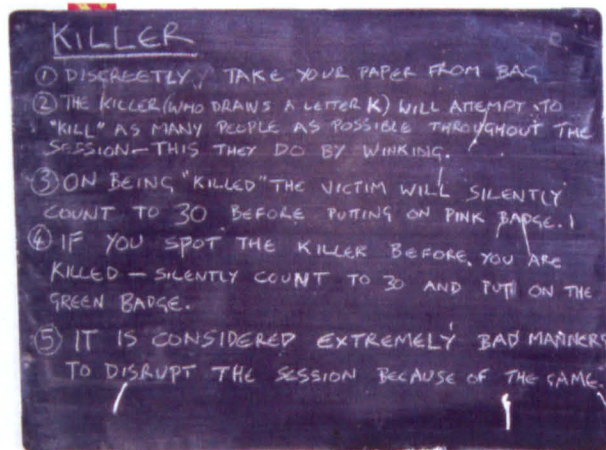 KILLER
① DISCREETLY, TAKE YOUR PAPER FROM BAG
② THE KILLER (WHO DRAWS A LETTER K) WILL ATTEMPT TO
"KILL" AS MANY PEOPLE AS POSSIBLE THROUGHOUT THE
SESSION - THIS THEY DO BY WINKING.
③ ON BEING "KILLED" THE VICTIM WILL SILENTLY
COUNT TO 30 BEFORE PUTTING ON PINK BADGE.
④ IF YOU SPOT THE KILLER BEFORE YOU ARE
KILLED - SILENTLY COUNT TO 30 AND PUT ON THE
GREEN BADGE.
⑤ IT IS CONSIDERED EXTREMELY BAD MANNERS
TO DISRUPT THE SESSION BECAUSE OF THE GAME.